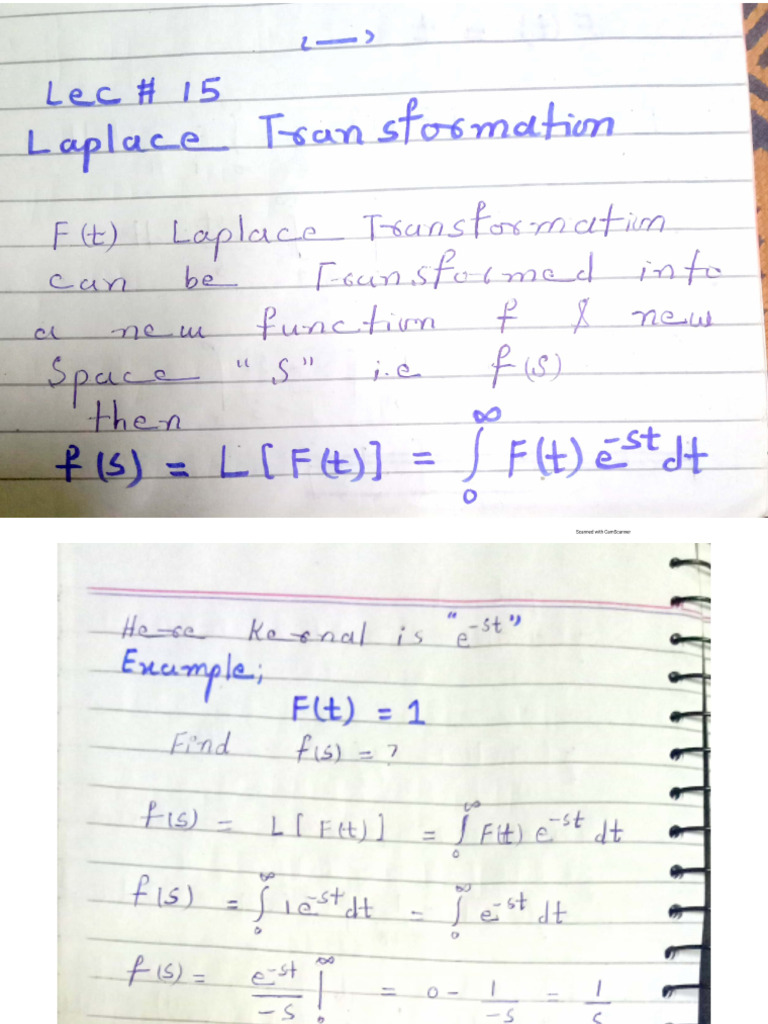 Lec # 15
Laplace Transformation
F(t) Laplace Transformation
can be Transformed into
a new function f & new
Space "S" i.e f(s)
then
f(s) = L[F(t)] = ∫₀^∞ F(t) e^-st dt
Scanned with CamScanner
Here Kernal is "e^-st"
Example;
F(t) = 1
Find f(s) = ?
f(s) = L[F(t)] = ∫₀^∞ F(t) e^-st dt
f(s) = ∫₀^∞ 1 e^-st dt = ∫₀^∞ e^-st dt
f(s) = e^-st/-s |₀^∞ = 0 - 1/-s = 1/s